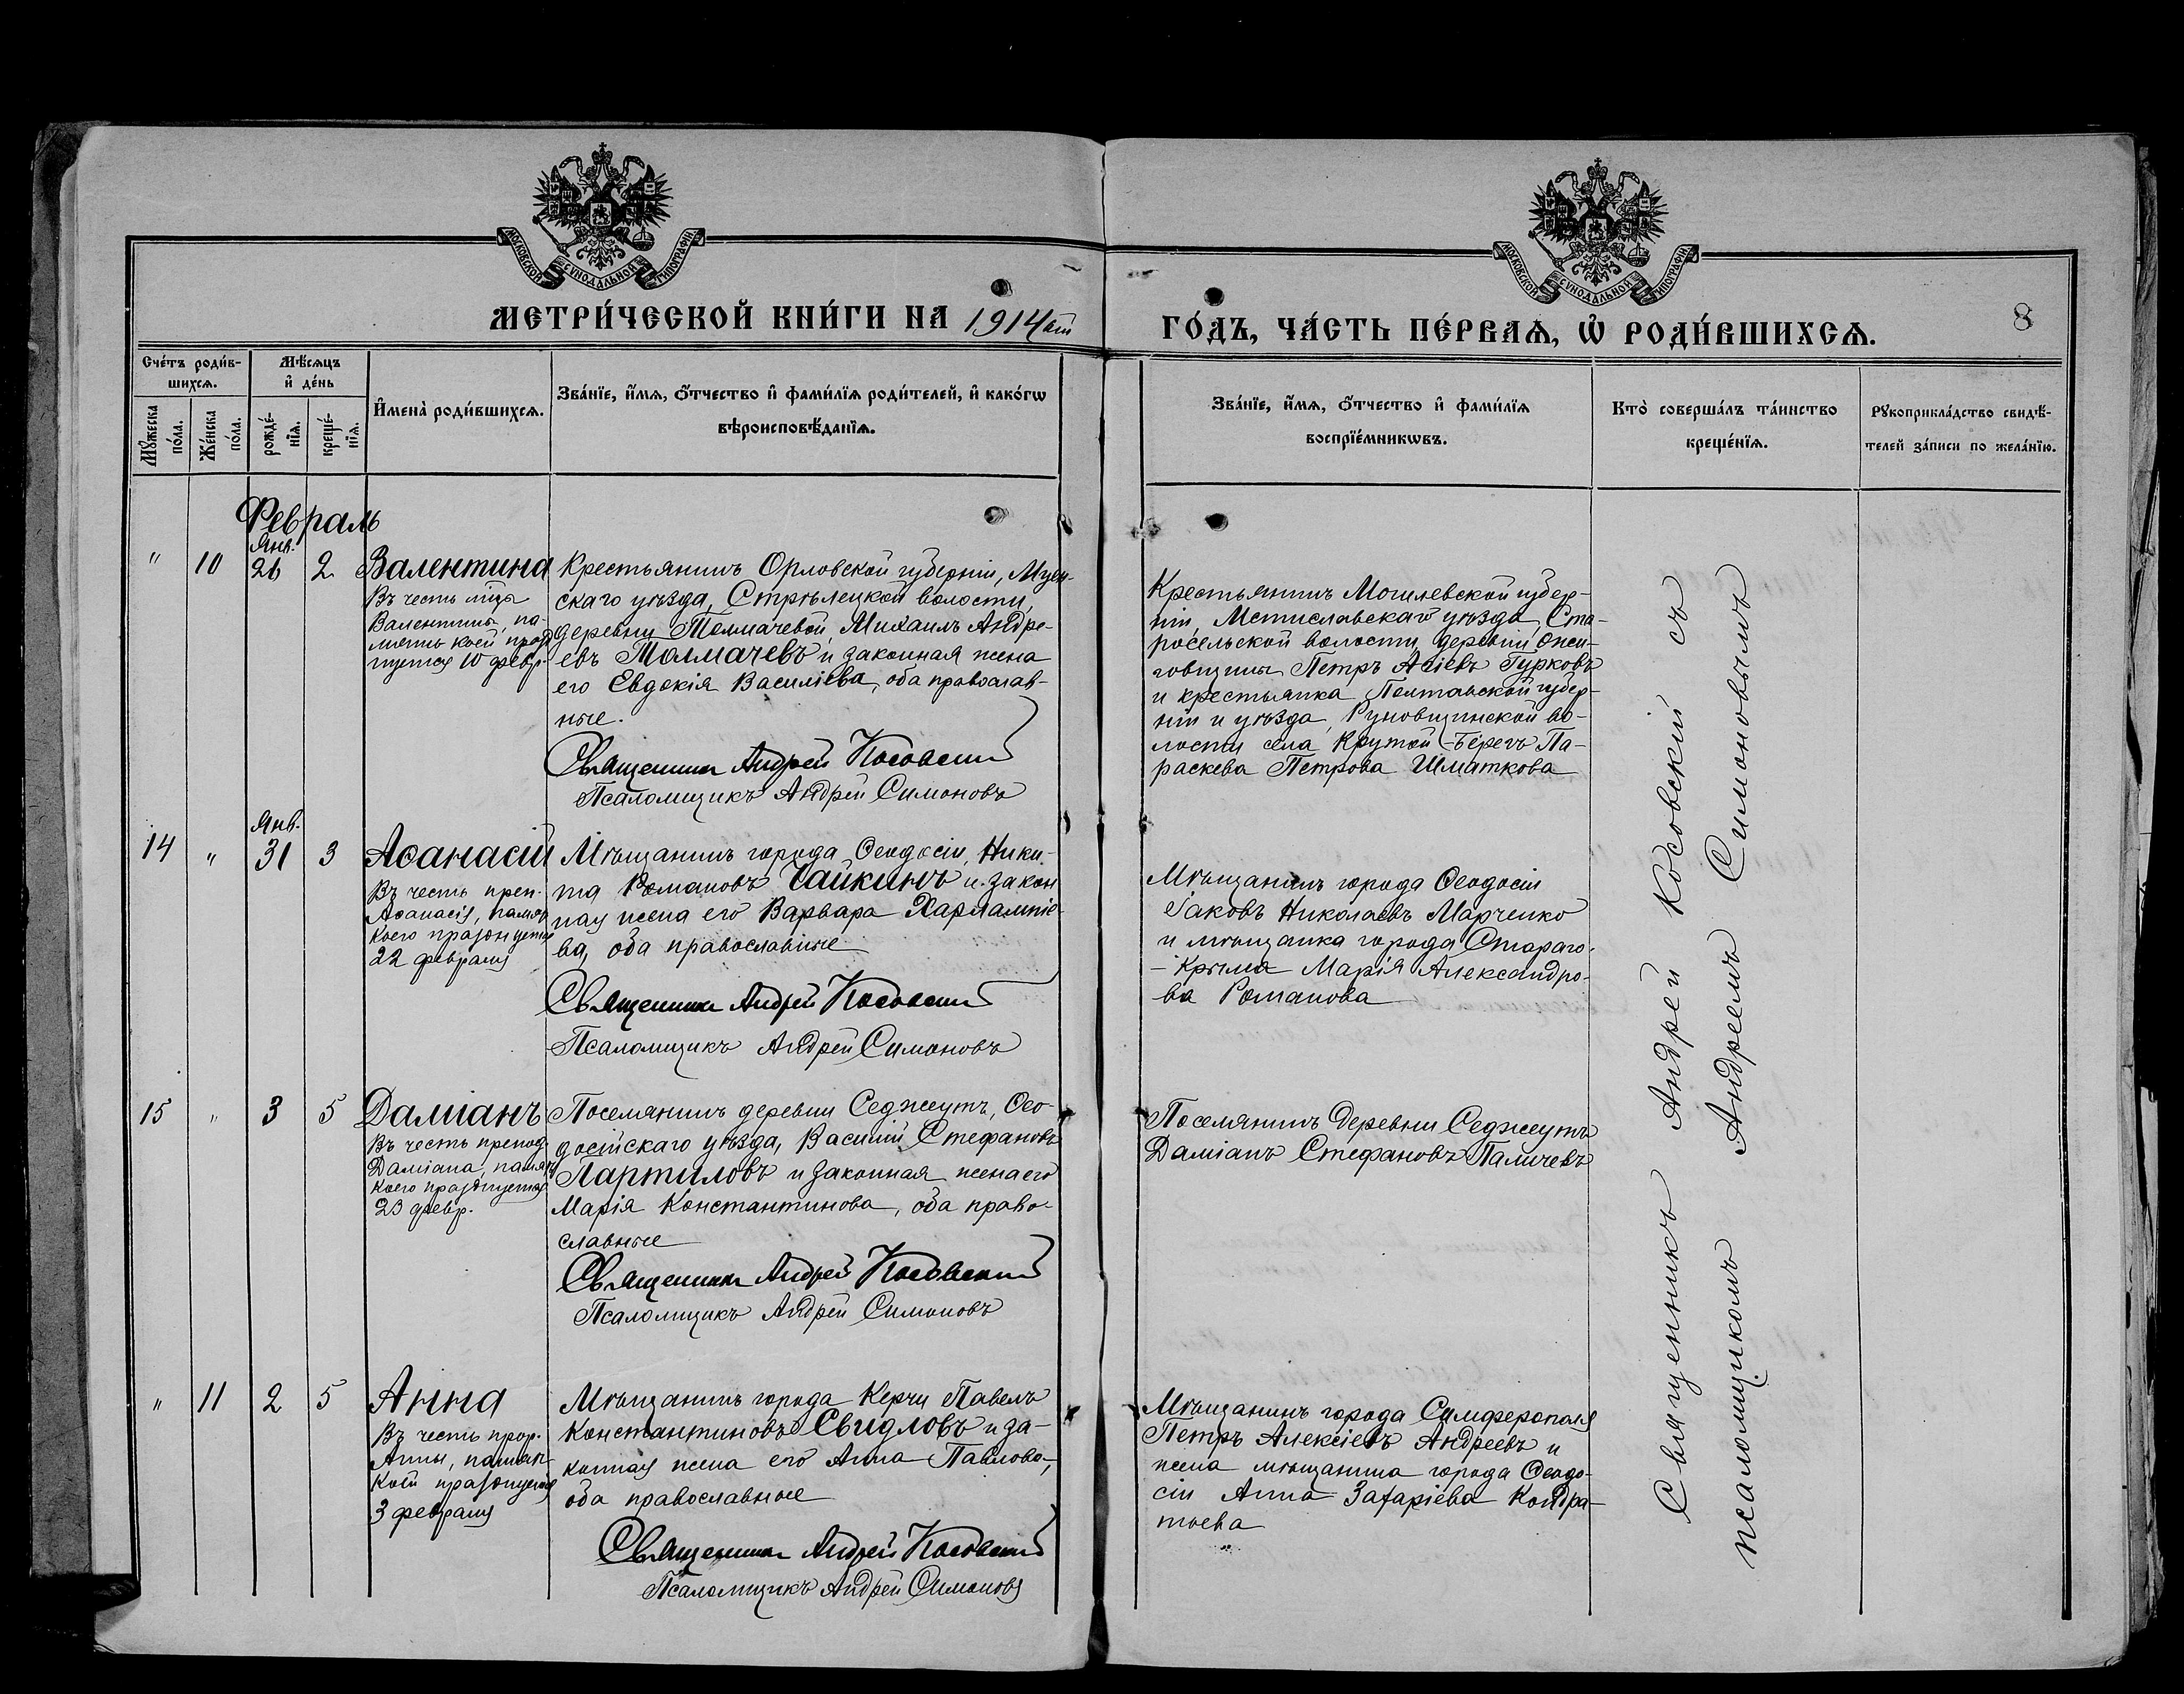 МОСКОВСКОЙ СѴНОДАЛЬНОЙ ТИПОГРАФІИ
МОСКОВСКОЙ СѴНОДАЛЬНОЙ ТИПОГРАФІИ
МЕТРИ́ЧЕСКОЙ КНИ́ГИ НА 1914
ГО́ДЪ, ЧА́СТЬ ПЕ́РВАѦ, Ѡ҆ РОДИ́ВШИХСѦ.
8
Сче́тъ роди́в-
шихсѧ.
Мꙋ́жеска
по́ла.
Же́нска
по́ла.
Мѣ́сѧцъ
и҆ де́нь
рожде́-
нїѧ.
креще́-
нїѧ.
И҆мена̀ роди́вшихсѧ.
Зва́нїе, и҆́мѧ, ѻ҆́тчество и҆ фами́лїѧ роди́телей, и҆ како́гѡ
вѣроисповѣ́данїѧ.
Зва́нїе, и҆́мѧ, ѻ҆́тчество и҆ фами́лїѧ
воспрїе́мникѡвъ.
Кто̀ соверша́лъ та́инство
креще́нїѧ.
Рꙋкоприкла́дство свидѣ́-
телей за́писи по жела́нїю.
Февраль
Янв.
" 10 26 2
Валентина
Въ честь м҃цы
Валентины, па-
мять коей празд
нуется 10 февр.
Крестьянинъ Орловской губерніи, Мцен-
скаго уѣзда, Стрѣлецкой волости,
деревни Толмачевой, Михаилъ Андре-
евъ Толмачевъ и законная жена
его Евдокія Василіева, оба православ-
ные.
Священникъ Андрей Косовскій
Псаломщикъ Андрей Симоновъ
Крестьянинъ Могилевской губер-
ніи, Мстиславскаго уѣзда, Ста-
росельской волости, деревни
Петръ Гурковъ
и крестьянка Полтавской губер-
ніи и уѣзда, Руновщинской во-
лости села Крутой-Берегъ Па-
раскева Петрова Шматкова
Янв.
14 " 31 3
Аѳанасій
Въ честь преп.
Аѳанасія, память
коего празднуется
22 февраля
Мѣщанинъ города Ѳеодосіи, Ники-
та Романовъ Чайкинъ и закон
ная жена его Варвара Харлампіе-
ва, оба православные
Священникъ Андрей Косовскій
Псаломщикъ Андрей Симоновъ
Мѣщанинъ города Ѳеодосіи
Іаковъ Николаевъ Марченко
и мѣщанка города Стараго-
-Крыма Марія Александро-
ва Романова
15 " 3 5
Даміанъ
Въ честь препод.
Даміана, память
коего празднуется
23 февр.
Поселянинъ деревни Седжеутъ, Ѳео-
досійскаго уѣзда, Василій Стефановъ
Партиловъ и законная жена его
Марія Константинова, оба право-
славные
Священникъ Андрей Косовскій
Псаломщикъ Андрей Симоновъ
Поселянинъ деревни Седжеутъ
Даміанъ Стефановъ Паличевъ
" 11 2 5
Анна
Въ честь прор.
Анны, память
коей празднуется
3 февраля
Мѣщанинъ города Керчи Павелъ
Константиновъ Свидловъ и за-
конная жена его Анна Павлова,
оба православные
Священникъ Андрей Косовскій
Псаломщикъ Андрей Симоновъ
Мѣщанинъ города Симферополя
Петръ Алексіевъ Андреевъ и
жена мѣщанина города Ѳеодо-
сіи Анна Захаріева Кондра-
тьева
Священникъ Андрей Косовскій съ
псаломщикомъ Андреемъ Симоновымъ